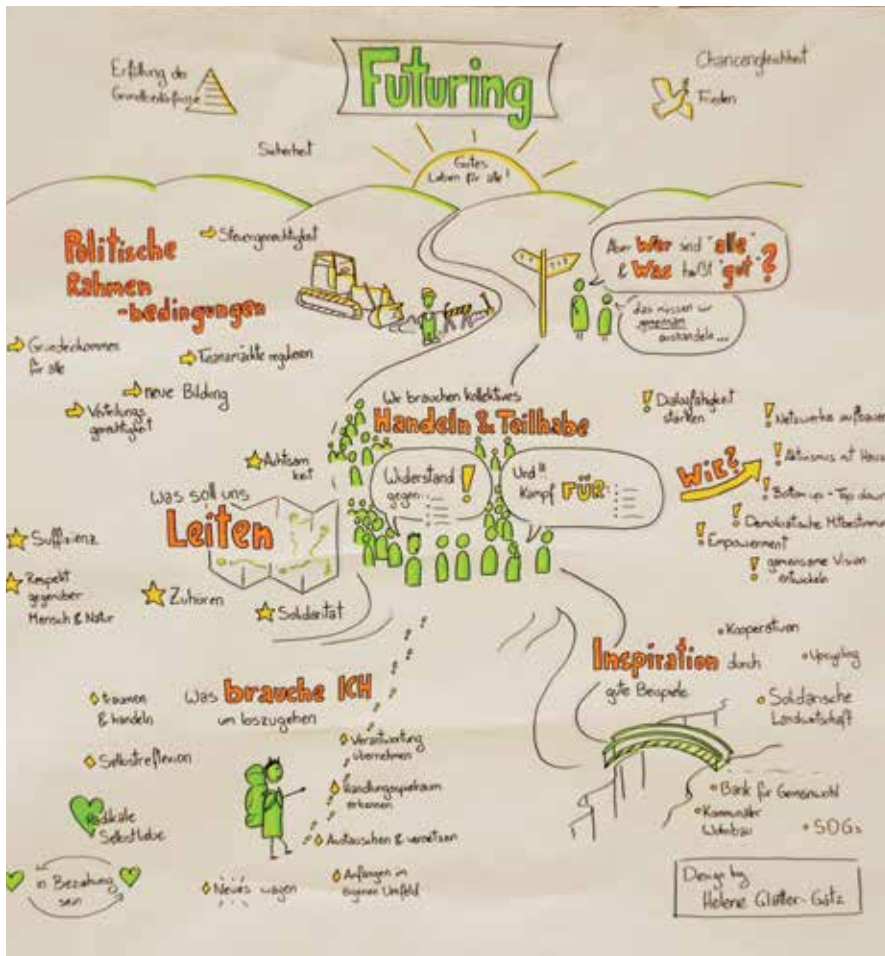 Futuring
Erfüllung der
Grundbedürfnisse
Chancengleichheit
Frieden
Sicherheit
Gutes
Leben für alle!
Politische
Rahmen
-bedingungen
Steuergerechtigkeit
Grundeinkommen
für alle
Finanzmärkte regulieren
neue Bildung
Verteilungs
gerechtigkeit
Aber Wer sind "alle"
& Was heißt "gut"?
das müssen wir
gemeinsam
aushandeln...
Wir brauchen kollektives
Handeln & Teilhabe
Widerstand
gegen...
!
Und
Kampf FÜR:
WIE?
! Dialogfähigkeit
stärken
! Netzwerke aufbauen
! Aktivismus mit
! Bottom up - Top down
! Demokratische Mitbestimm
! Empowerment
! gemeinsame Vision
entwickeln
Was soll uns
Leiten
Achtsam
keit
Suffizienz
Respekt
gegenüber
Mensch & Natur
Zuhören
Solidarität
Was brauche ICH
um loszugehen
träumen
& handeln
Selbstreflexion
Radikale
Selbstliebe
in Beziehung
sein
Neues wagen
Verantwortung
übernehmen
Handlungsspielraum
erkennen
Austauschen & vernetzen
Anfangen im
eigenen Umfeld
Inspiration durch
gute Beispiele
Kooperativen
Upcycling
Solidarische
Landwirtschaft
Bank für Gemeinwohl
Kommunaler
Wohnbau
SDGs
Design by
Helene Glatter-Götz